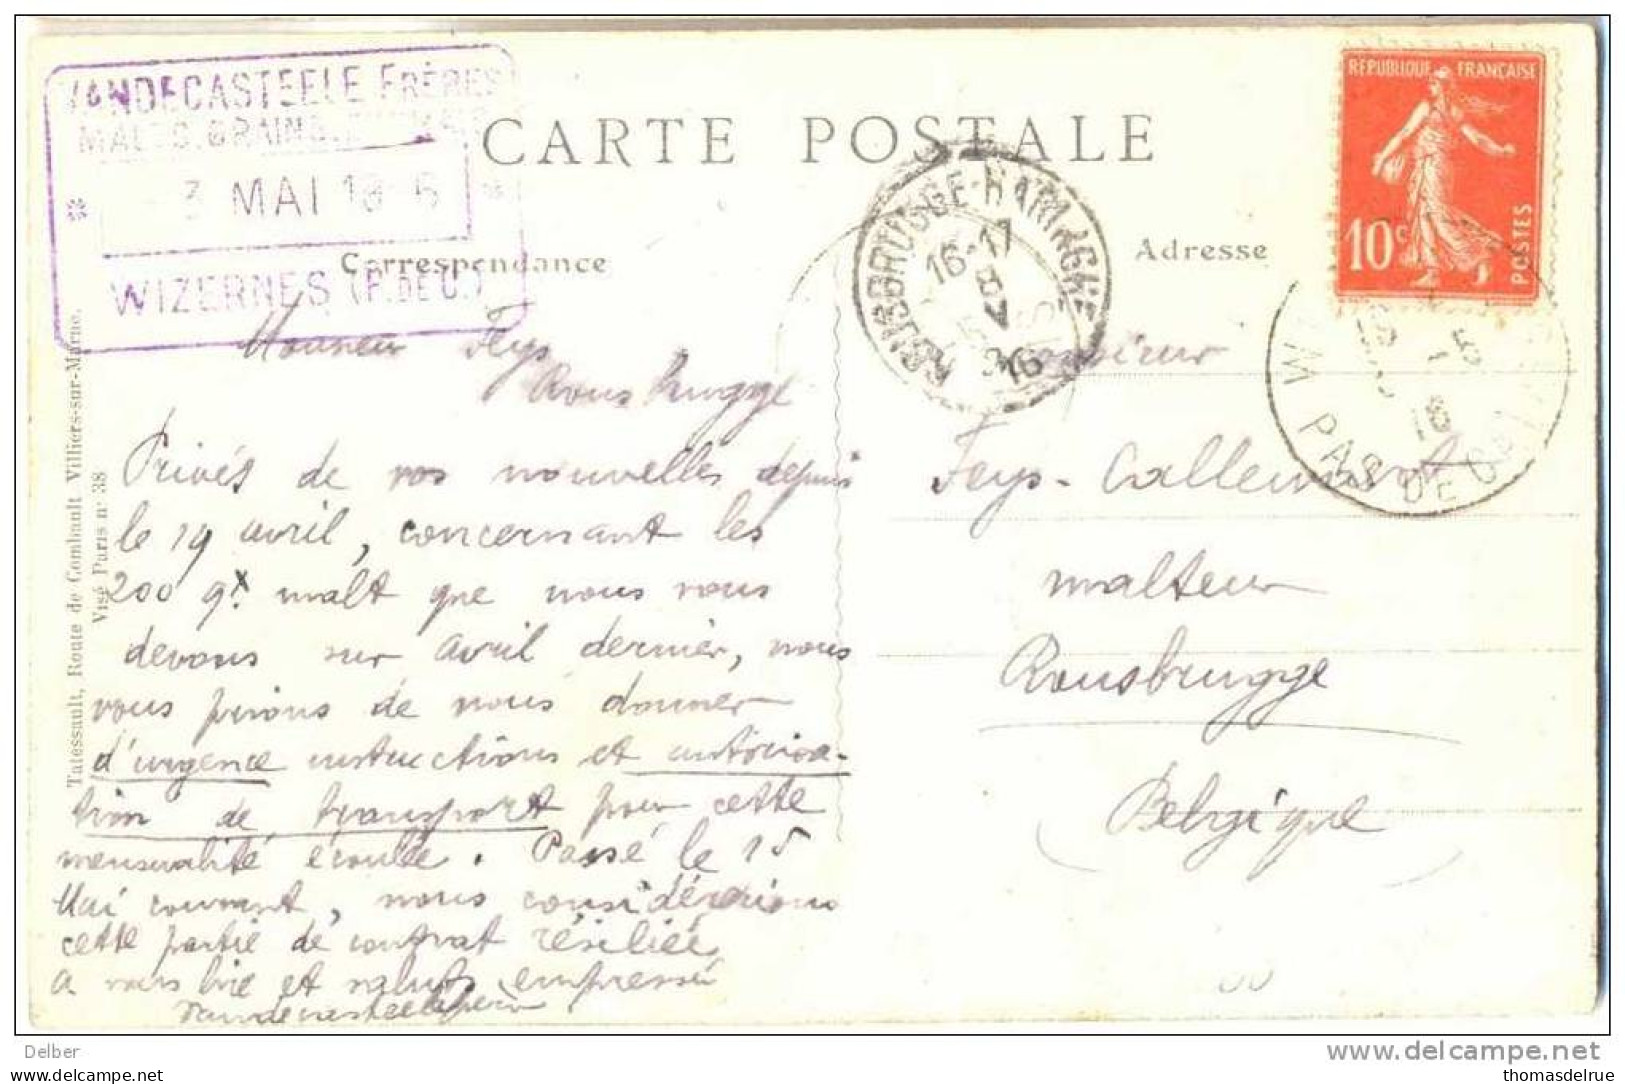 VANDECASTEELE FRÈRES
MALTS. GRAINS.
3 MAI 19 6
WIZERNES (P. DE C.)
CARTE POSTALE
Correspondance
Adresse
REPUBLIQUE FRANÇAISE
10c
POSTES
ROUSBRUGGE-HARINGHE
16-17
5
V
16
PAS DE CALAIS
Tatessault, Route de Combault Villiers-sur-Marne.
Visé Paris n° 38
Monsieur Feys
Rousbrugge
Privés de vos nouvelles depuis
le 19 avril, concernant les
200 qx malt que nous vous
devons sur avril dernier, nous
vous prions de nous donner
d'urgence instructions et autorisa-
tion de transport pour cette
mensualité écoulée. Passé le 15
Mai courant, nous considérerions
cette partie de contrat résiliée,
A vous lire et saluts empressés
Vandecasteele frères
Monsieur
Feys-Callewaert
malteur
Rousbrugge
(Belgique)
Delber
www.delcampe.net
thomasdelrue